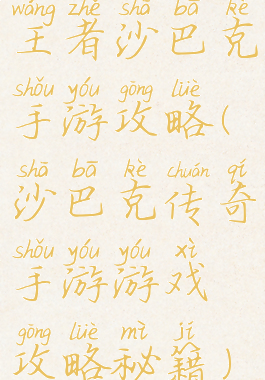 wáng zhě shā bā kè
王者沙巴克
shǒu yóu gōng lüè
手游攻略(
shā bā kè chuán qí
沙巴克传奇
shǒu yóu yóu xì
手游游戏
gōng lüè mì jí
攻略秘籍)